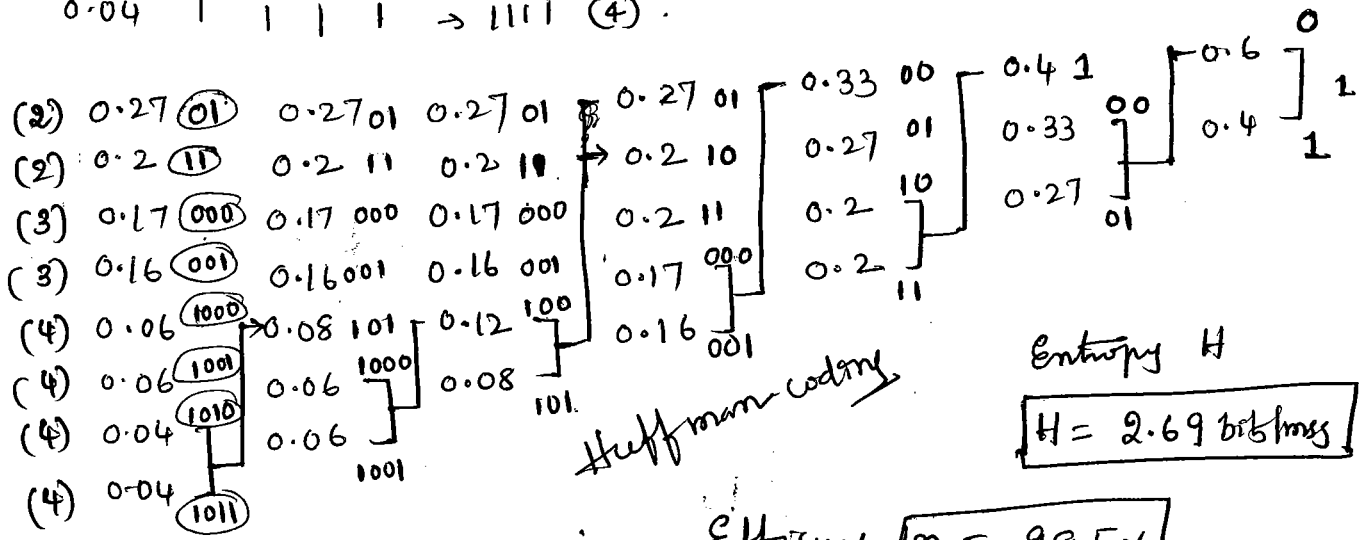 0.04 1 1 1 1 → 1111 (4).
(2) 0.27 01 0.27 01 0.27 01 0.27 01 0.33 00 0.4 1 0.6 0
(2) 0.2 11 0.2 11 0.2 11 → 0.2 10 0.27 01 0.33 00 0.4 1 1
(3) 0.17 000 0.17 000 0.17 000 0.2 11 0.2 10 0.27 01
(3) 0.16 001 0.16 001 0.16 001 0.17 000 0.2 11
(4) 0.06 1000 0.08 101 0.12 100 0.16 001
(4) 0.06 1001 0.06 1000 0.08 101
(4) 0.04 1010 0.06 1001
(4) 0.04 1011
Huffman coding
Entropy H
H = 2.69 bits/msg